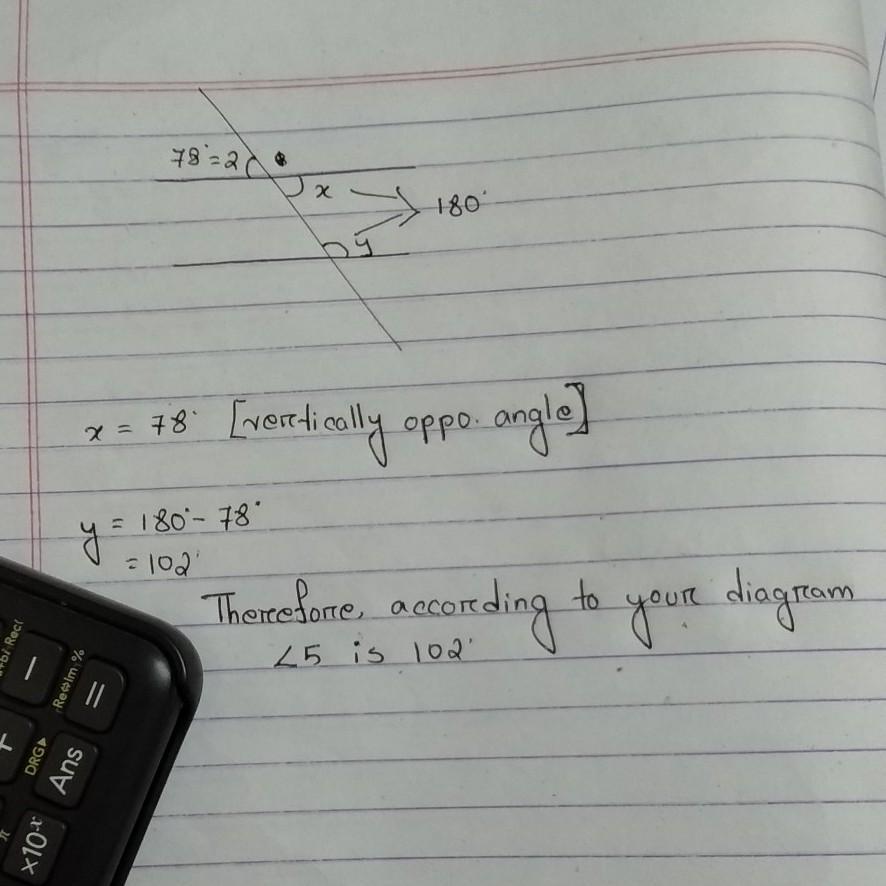 78°=2
x
180°
y
x = 78° [vertically oppo. angle]
y = 180° - 78°
= 102°
Therefore, according to your diagram
∠5 is 102°
Re⇔Im:%
−
=
DRG▶
Ans
π
×10ˣ